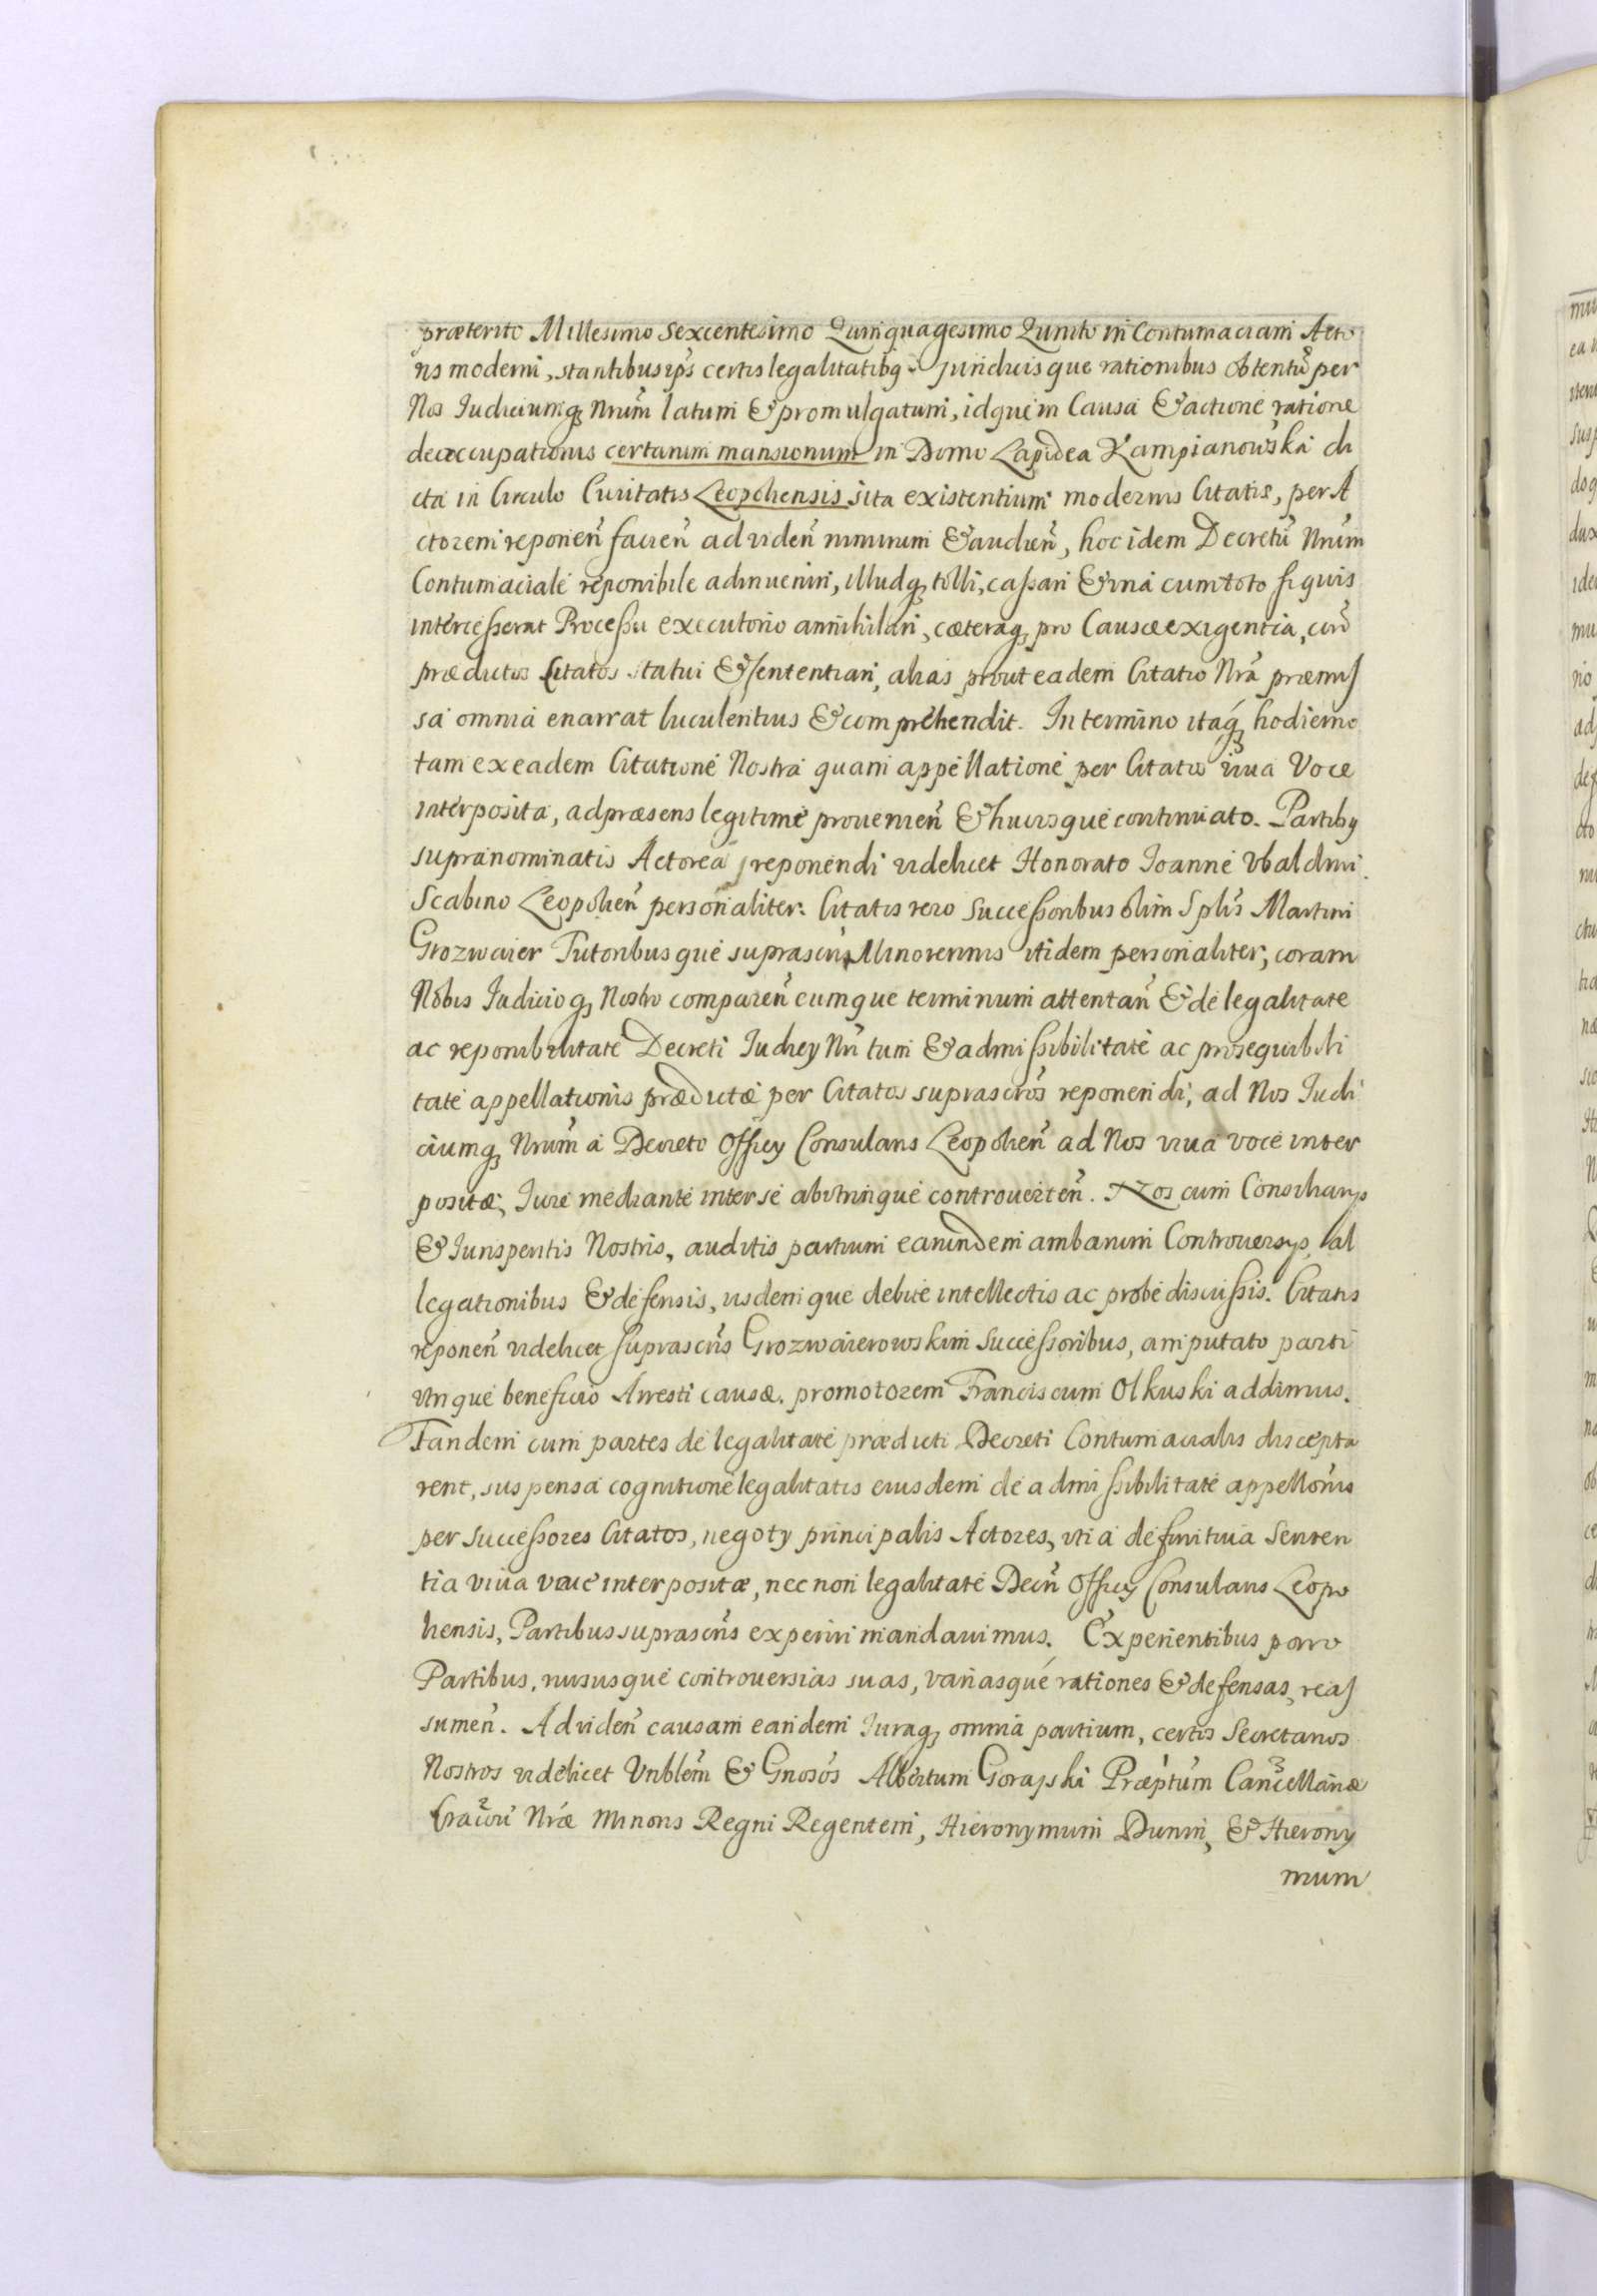 præterito Millesimo Sexcentesimo Quinquagesimo Quinto in Contumaciam Acto
ris moderni, stantibus ip̃s certis legalitatibq juridicisque rationibus obtentũ per
Nos Iudiciumq̨ Nrũm latum & promulgatum, idque in Causa & actione ratione
deoccupationis certarum mansionum in Domo Lapidea Kampianowska di
cta in Circulo Ciuitatis Leopoliensis sita existentium modernis Citatis, per A
ctorem reponeñ facieñ ad videñ nimirum & audieñ, hoc idem Decretũ Nrũm
Contumaciale reponibile adinueniri, illudq̨ tolli, cassari & vna cum toto si quis
intercesserat Processu executorio annihilari, cæteraq̨ pro Causæ exigentia, cir̃
prædictos Citatos statui & sententiari, alias prout eadem Citatio Nr̃a præmis
sa omnia enarrat luculentius & comprehendit. In termino itaq̨ hodierno
tam ex eadem Citatione Nostra quam appellatione per Citatos viua Voce
interposita, ad præsens legitime prouenieñ & hucusque continuato. Partibq
supranominatis Actorea reponendi videlicet Honorato Ioanne Vbaldini
Scabino Leopolieñ personaliter. Citatis vero Successoribus olim Spl̃is Martini
Grozwaier Tutoribusque suprascrip̃ Minorennis itidem personaliter, coram
Nobis Iudicioq̨ Nostro compareñ eumque terminum attentañ & de legalitate
ac reponibilitate Decreti Iudicy Nr̃i tum & admissibilitate ac prosequibili
tate appellationis prædictæ per Citatos suprascr̃os reponendi, ad Nos Iudi
ciumq̨ Nrũm a Decreto Officy Consularis Leopolieñ ad Nos viua voce inter
positæ, Iure mediante inter se abvtrinque controuerteñ. Nos cum Consiliarys
& Iurisperitis Nostris, auditis partium earundem ambarum Controuersys, al
legationibus & defensis, ijsdemque debite intellectis ac probe discussis. Citatis
reponeñ videlicet suprascr̃is Grozwaierowskim Successoribus, amputato parti
vtrique beneficio Arresti causæ. promotorem Franciscum Olkuski addimus.
Tandem cum partes de legalitate prædicti Decreti Contumacialis discepta
rent, suspensa cognitione legalitatis eiusdem de admissibilitate appello͂nis
per Successores Citatos, negoty principalis Actores, vti a definitiua Senten
tia viua voce interpositæ, nec non legalitate Decr̃i Officy Consularis Leopo
liensis, Partibus suprascr̃is experiri mandauimus. Experientibus porro
Partibus, rursusque controuersias suas, variasque rationes & defensas, reas
sumeñ. Ad videñ causam eandem Iuraq̨ omnia partium, certos Secretarios
Nostros videlicet Vrıblem̃ & Gñosos Albertum Gorayski Præp̃tum Cancellariæ
Cracoũ Nr̃æ Minoris Regni Regentem, Hieronymum Dunin, & Hierony
mum